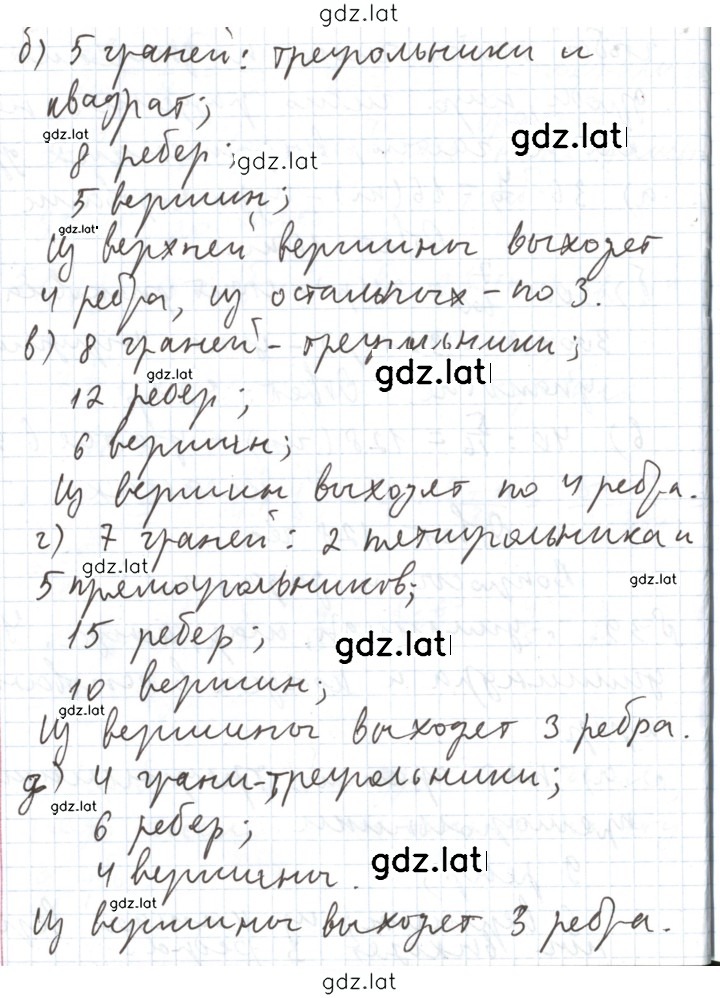 gdz.lat
б) 5 граней: треугольники и
квадрат;
gdz.lat
gdz.lat
8 ребер;
gdz.lat
5 вершин;
gdz.lat
Из верхней вершины выходят
4 ребра, из остальных – по 3.
в) 8 граней – треугольники;
gdz.lat
gdz.lat
12 ребер;
6 вершин;
Из вершин выходят по 4 ребра.
г) 7 граней: 2 пятиугольника и
gdz.lat
5 прямоугольников;
gdz.lat
15 ребер;
gdz.lat
10 вершин;
gdz.lat
Из вершины выходят 3 ребра.
д) 4 грани – треугольники;
gdz.lat
6 ребер;
4 вершины.
gdz.lat
gdz.lat
Из вершины выходят 3 ребра.
gdz.lat